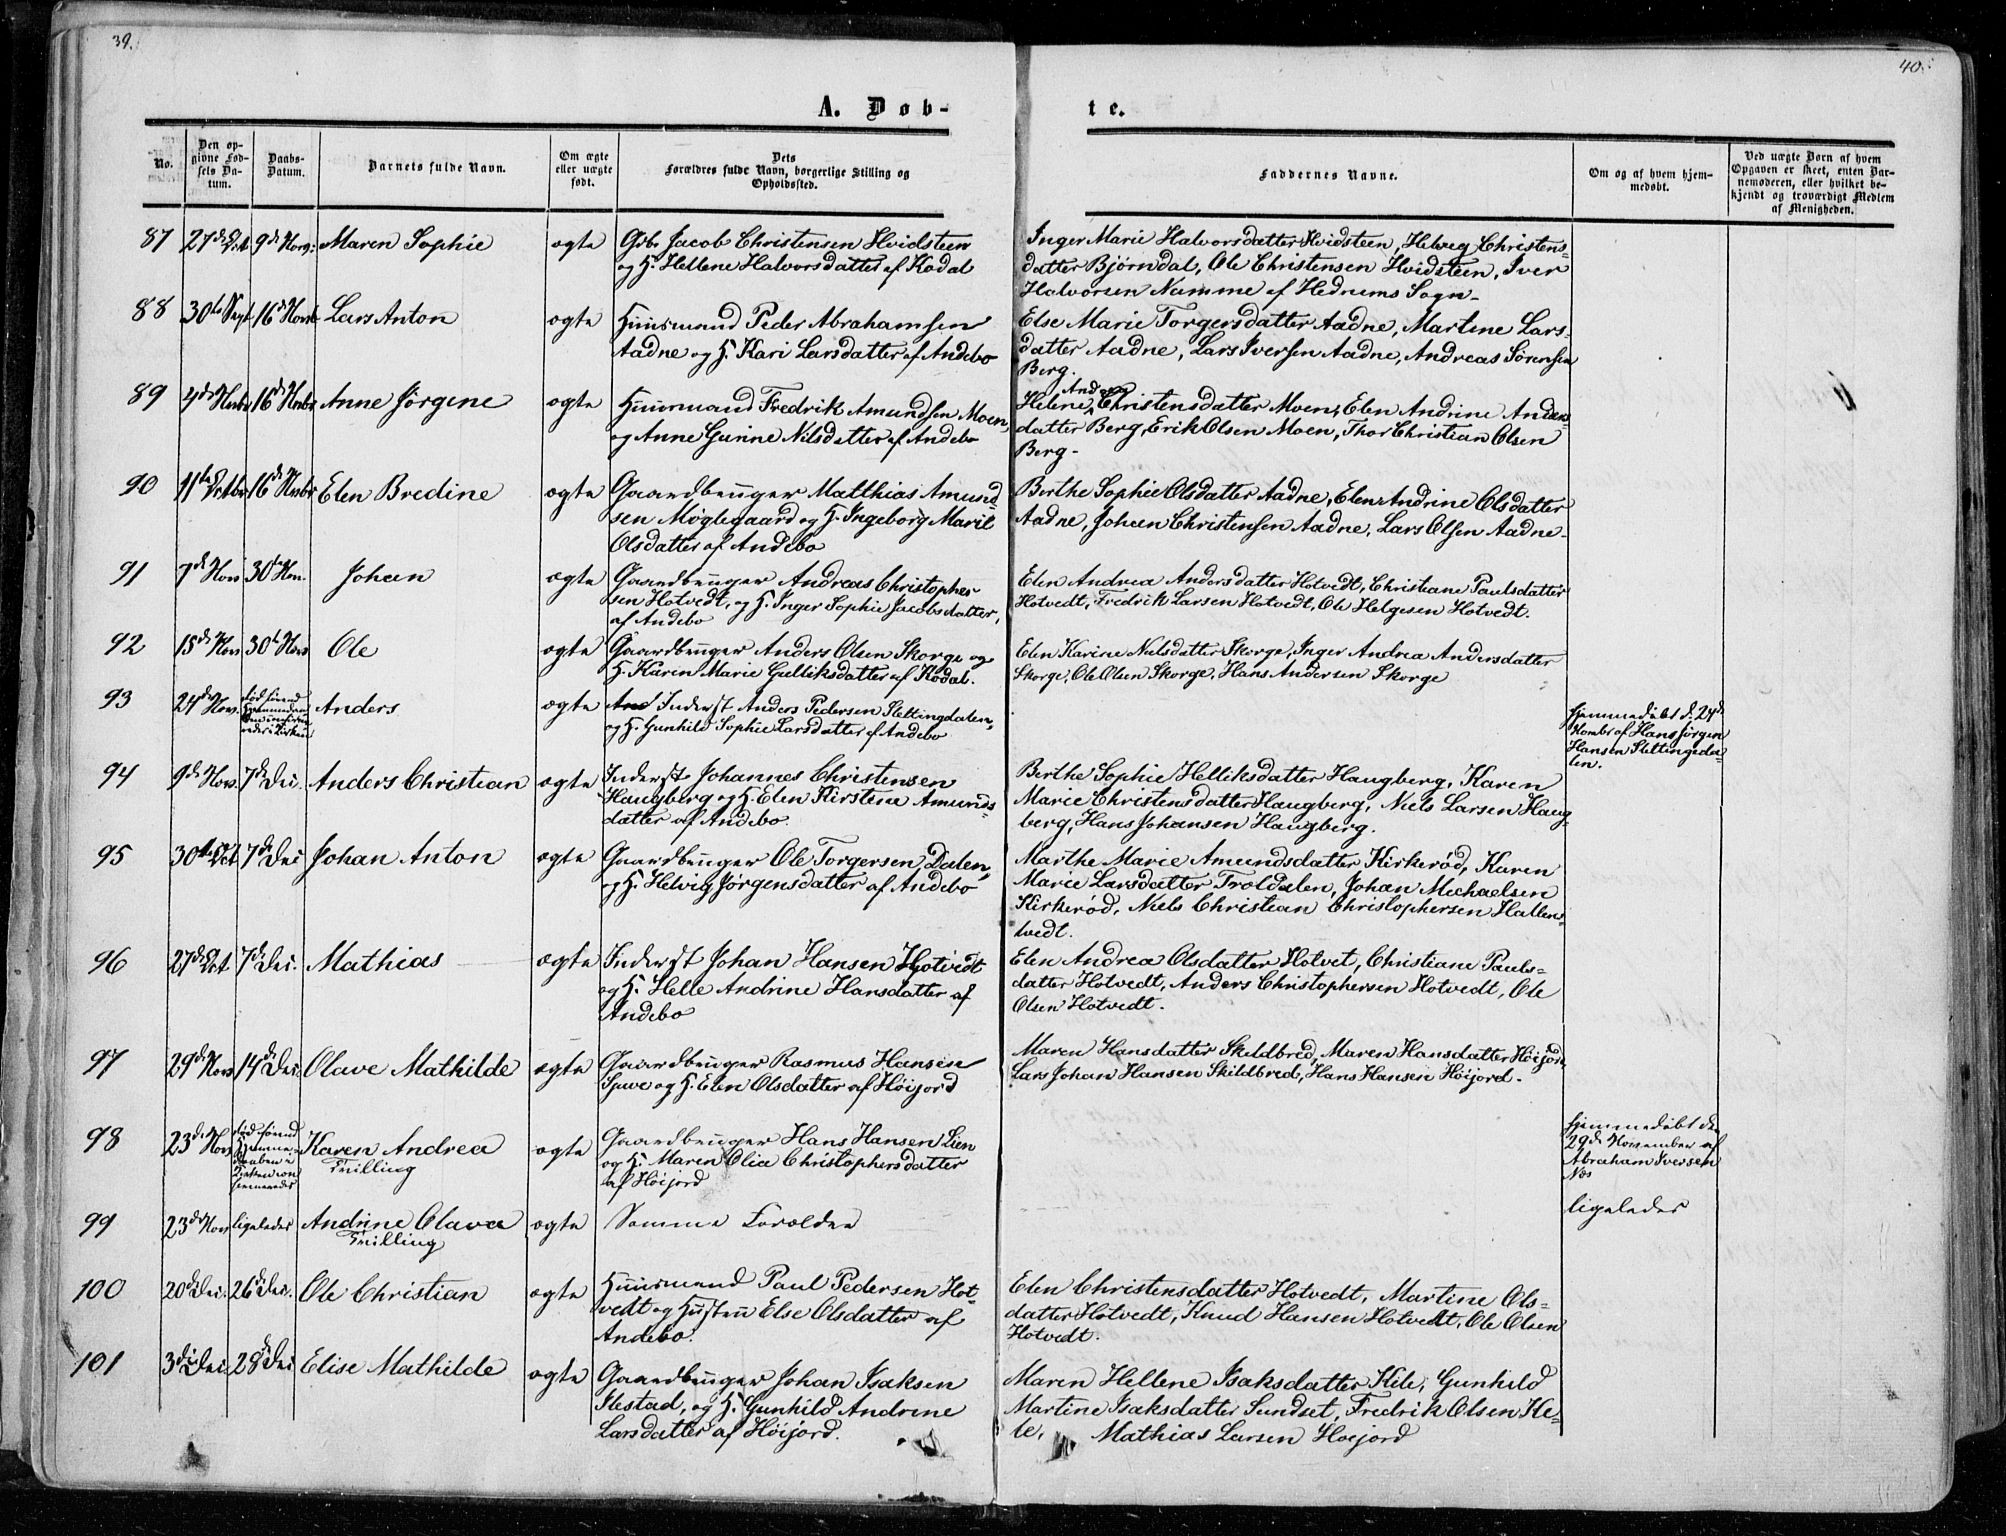 39.
40.
A. Døb-
te.
No.
Den opgivne Fødsels Datum.
Daabs-Datum.
Barnets fulde Navn.
Om ægte eller uægte født.
Dets Forældres fulde Navn, borgerlige Stilling og Opholdssted.
Faddernes Navne.
Om og af hvem hjemmedøbt.
Ved uægte Børn af hvem Opgaven er skeet, enten Barnemoderen, eller hvilket bekjendt og troværdigt Medlem af Menigheden.
87 27de Oct 9de Novr: Maren Sophie ægte Gdbr Jacob Christensen Hvidsteen
og H. Hellene Halvorsdatter af Kodal
Inger Marie Halvorsdatter Hvidsteen, Helvig Christens=
datter Bjørndal, Ole Christensen Hvidsteen, Iver
Halvorsen Namme af Hedrums Sogn-
88 30te Sept 16de Novb Lars Anton ægte Huusmand Peder Abrahamsen
Aadne og H. Kari Larsdatter af Andebo
Else Marie Torgersdatter Aadne, Martine Lars=
datter Aadne, Lars Iversen Aadne, Andreas Sørensen
Berg.
89 4de Novbr 16de Novbr Anne Jørgine ægte Huusmand Fredrik Amundsen Moen,
og Anne Gurine Nilsdatter af Andebo
Andrea
Helene Christensdatter Moen, Elen Andrine Anders=
datter Berg, Erik Olsen Moen, Thor Christian Olsen
Berg-
90 11te Octbr 16de Novbr Elen Bredine ægte Gaardbruger Matthias Amund=
sen Møglegaard og H. Ingeborg Marie
Olsdatter af Andebo
Berthe Sophie Olsdatter Aadne, Elen Andrine Olsdatter
Aadne, Johan Christensen Aadne, Lars Olsen Aadne-
91 7de Nov 30te Nov. Johan ægte Gaardbruger Andreas Christopher
sen Hotvedt, og H. Inger Sophie Jacobsdatter,
af Andebo
Elen Andrea Andersdatter Hotvedt, Christiane Paulsdatter
Hotvedt, Fredrik Larsen Hotvedt, Ole Helgesen Hotvedt.
92 15de Nov 30te Nov Ole ægte Gaardbruger Anders Olsen Skorge og
H. Karin Marie Gulliksdatter af Kodal.
Elen Karine Nilsdatter Skorge, Inger Andrea Andersdatter
Skorge, Ole Olsen Skorge, Hans Andersen Skorge
93 24de Nov. død førend Anders ægte And Inderst Anders Pedersen Slettingdalen,
og H. Gunhild Sophie Larsdatter af Andebo
Hjemmedøbt d: 24de
Novbr af Hans Jørgen
Hansen Slettingeda=
len.
94 9de Nov. 7de Dec. Anders Christian ægte Inderst Johannes Christensen
Haugberg og H. Elen Kirstine Amunds=
datter af Andebo.
Berthe Sophie Helliksdatter Haugberg, Karen
Marie Christensdatter Haugberg, Niels Larsen Haug=
berg, Hans Johansen Haugberg.
95 30te Oct 7de Dec Johan Anton ægte Gaardbruger Ole Torgersen Dalen,
og H. Helvig Jørgensdatter af Andebo
Marthe Marie Amundsdatter Kirkerød, Karen
Marie Larsdatter Troldalen, Johan Michaelsen
Kirkerød, Niels Christian Christophersen Hallens=
vedt.
96 27de Oct 7de Dec. Mathias ægte Inderst Johan Hansen Hotvedt
og H. Helle Andrine Hansdatter af
Andebo
Elen Andrea Olsdatter Hotvet, Christiane Pauls=
datter Hotvedt, Anders Christophersen Hotvedt, Ole
Olsen Hotvedt.
97 29de Nov 14de Dec. Olave Mathilde ægte Gaardbruger Rasmus Hansen
og H. Elen Olsdatter af Høijord
Maren Hansdatter Skildbred, Maren Hansdatter Høijord,
Lars Johan Hansen Skildbred, Hans Hansen Høijord.
98 23de Nov død førend Hjemme=
daaben i
Kirken con
firmeredes
Karen Andrea
Trilling
ægte Gaardbruger Hans Hansen Lien
og H. Maren Olia Christophersdatter
af Høijord
Hjemmedøbt den
29de November af
Abraham Iversen
Næs
99 23de Nov ligeledes Andrine Olava
Trilling
ægte Samme Forældre
ligeledes
100 20de Dec. 26de Dec. Ole Christian ægte Huusmand Paul Pedersen Hot=
vedt og Hustru Else Olsdatter af
Andebo.
Elen Christensdatter Hotvedt, Martine Ols=
datter Hotvedt, Knud Hansen Hotvedt, Ole Olsen
Hotvedt.
101 3die Dec. 28de Dec Elise Mathilde ægte Gaardbruger Johan Isaksen
Ilestad, og H. Gunhild Andrine
Larsdatter af Høijord.
Maren Hellene Isaksdatter Kile, Gunhild
Martine Isaksdatter Sundset, Fredrik Olsen Ke=
le, Mathias Larsen Høijord